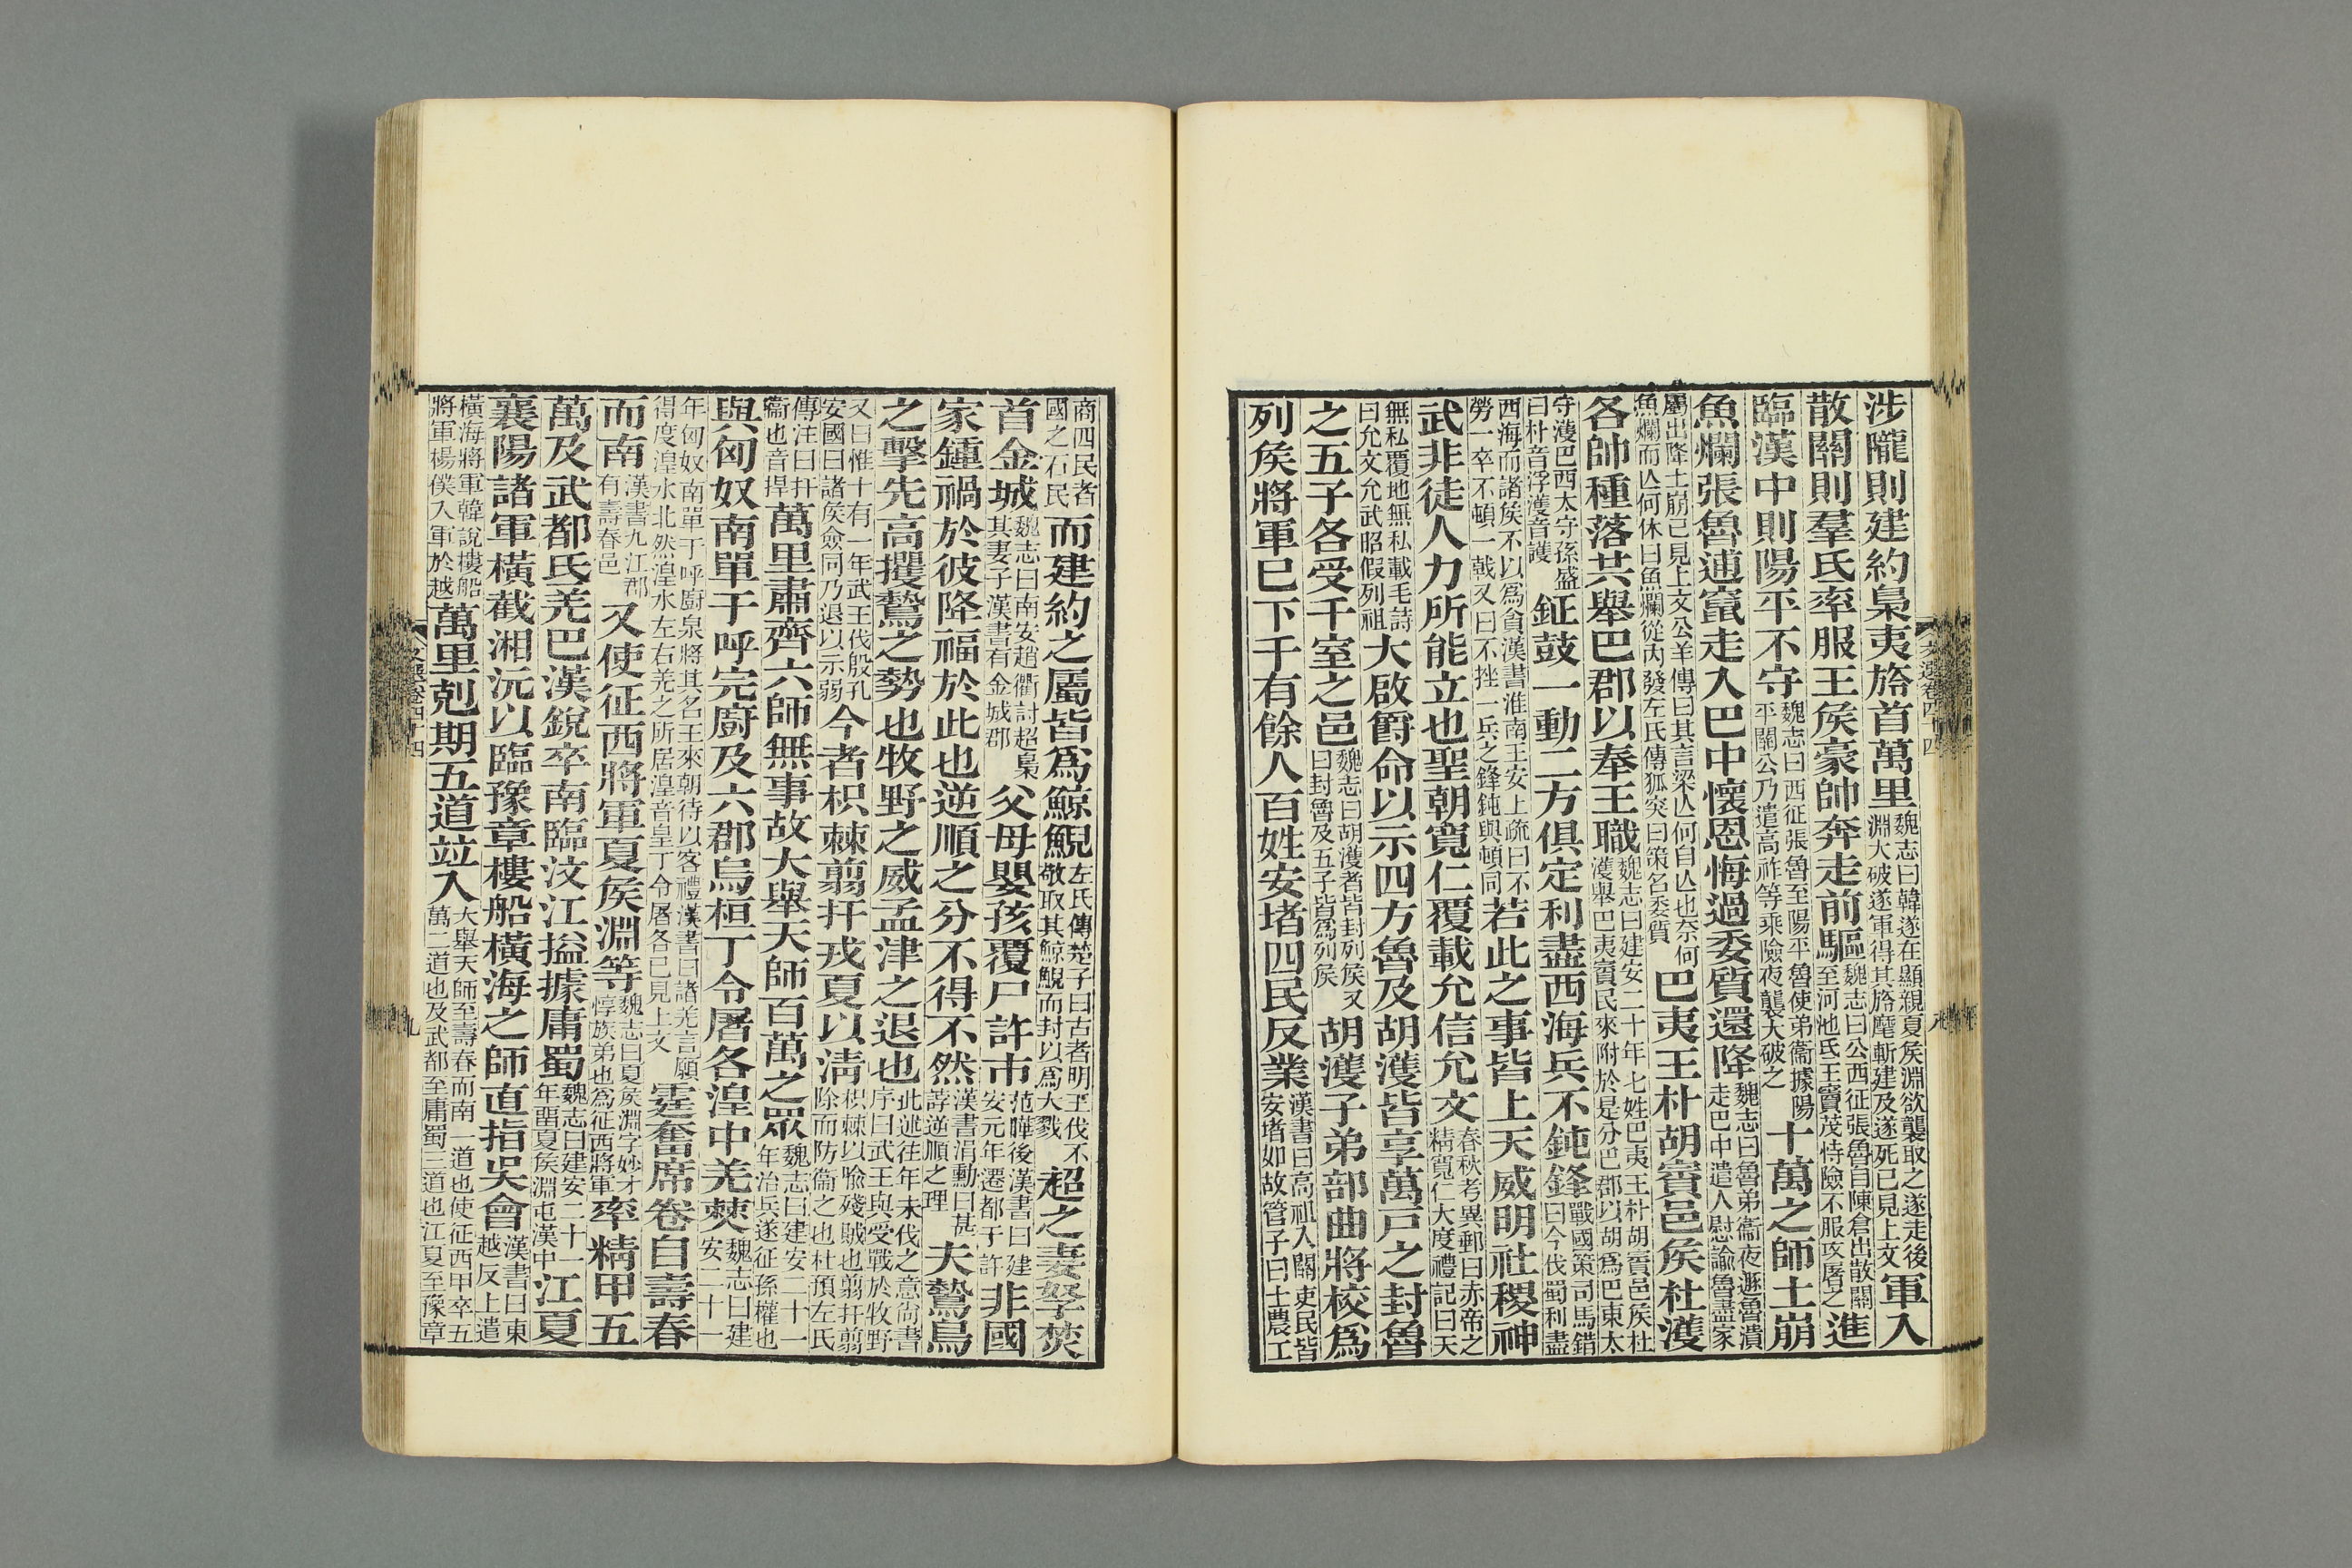 涉隴則建約梟夷旍首萬里魏志曰韓遂在顯親夏侯淵欲襲取之遂走後淵大破遂軍得其旍麾斬建及遂死已見上文軍入
散關則羣氐率服王侯豪帥奔走前驅魏志曰公西征張魯自陳倉出散關至河池氐王竇茂恃險不服攻屠之進
臨漢中則陽平不守魏志曰西征張魯至陽平魯使弟衞據陽平關公乃遣高祚等乘險夜襲大破之十萬之師土崩
魚爛張魯逋竄走入巴中懷恩悔過委質還降魏志曰魯弟衞夜遯魯潰走巴中遣人慰諭魯盡家
屬出降土崩已見上文公羊傳曰其言梁亾何自亾也奈何魚爛而亾何休曰魚爛從內發左氏傳狐突曰策名委質巴夷王朴胡賨邑侯杜濩
各帥種落共舉巴郡以奉王職魏志曰建安二十年七姓巴夷王朴胡賨邑侯杜濩舉巴夷賨民來附於是分巴郡以胡爲巴東太
守濩巴西太守孫盛曰朴音浮濩音護鉦鼓一動二方俱定利盡西海兵不鈍鋒戰國策司馬錯曰今伐蜀利盡
西海而諸侯不以爲貪漢書淮南王安上疏曰不勞一卒不頓一戟又曰不挫一兵之鋒鈍與頓同若此之事皆上天威明社稷神
武非徒人力所能立也聖朝寬仁覆載允信允文春秋考異郵曰赤帝之精寬仁大度禮記曰天
無私覆地無私載毛詩曰允文允武昭假列祖大啟爵命以示四方魯及胡濩皆享萬戶之封魯
之五子各受千室之邑魏志曰胡濩者皆封列侯又曰封魯及五子皆爲列侯胡濩子弟部曲將校爲
列侯將軍已下千有餘人百姓安堵四民反業漢書曰高祖入關吏民皆安堵如故管子曰士農工
文選卷四十四
八
商四民者國之石民而建約之屬皆爲鯨鯢左氏傳楚子曰古者明王伐不敬取其鯨鯢而封以爲大戮超之妻孥焚
首金城魏志曰南安趙衢討超梟其妻子漢書有金城郡父母嬰孩覆尸許市范曄後漢書曰建安元年遷都于許非國
家鍾禍於彼降福於此也逆順之分不得不然漢書涓勳曰甚誖逆順之理夫鷙鳥
之擊先高攫鷙之勢也牧野之威孟津之退也此述往年未伐之意尙書序曰武王與受戰於牧野
又曰惟十有一年武王伐殷孔安國曰諸侯僉同乃退以示弱今者枳棘翦扞戎夏以淸枳棘以喻殘賊也翦扞翦除而防衞之也杜預左氏
傳注曰扞衞也音捍萬里肅齊六師無事故大舉天師百萬之眾魏志曰建安二十一年治兵遂征孫權也
與匈奴南單于呼完廚及六郡烏桓丁令屠各湟中羌僰魏志曰建安二十一
年匈奴南單于呼廚泉將其名王來朝待以客禮漢書曰諸羌言願得度湟水北然湟水左右羌之所居湟音皇丁令屠各已見上文霆奮席卷自壽春
而南漢書九江郡有壽春邑又使征西將軍夏侯淵等魏志曰夏侯淵字妙才惇族弟也爲征西將軍率精甲五
萬及武都氐羌巴漢銳卒南臨汶江搤據庸蜀魏志曰建安二十一年畱夏侯淵屯漢中江夏
襄陽諸軍橫截湘沅以臨豫章樓船橫海之師直指吳會漢書曰東越反上遣
橫海將軍韓說樓船將軍楊僕入軍於越萬里剋期五道竝入大舉天師至壽春而南一道也使征西甲卒五萬二道也及武都至庸蜀三道也江夏至豫章
文選卷四十四
九